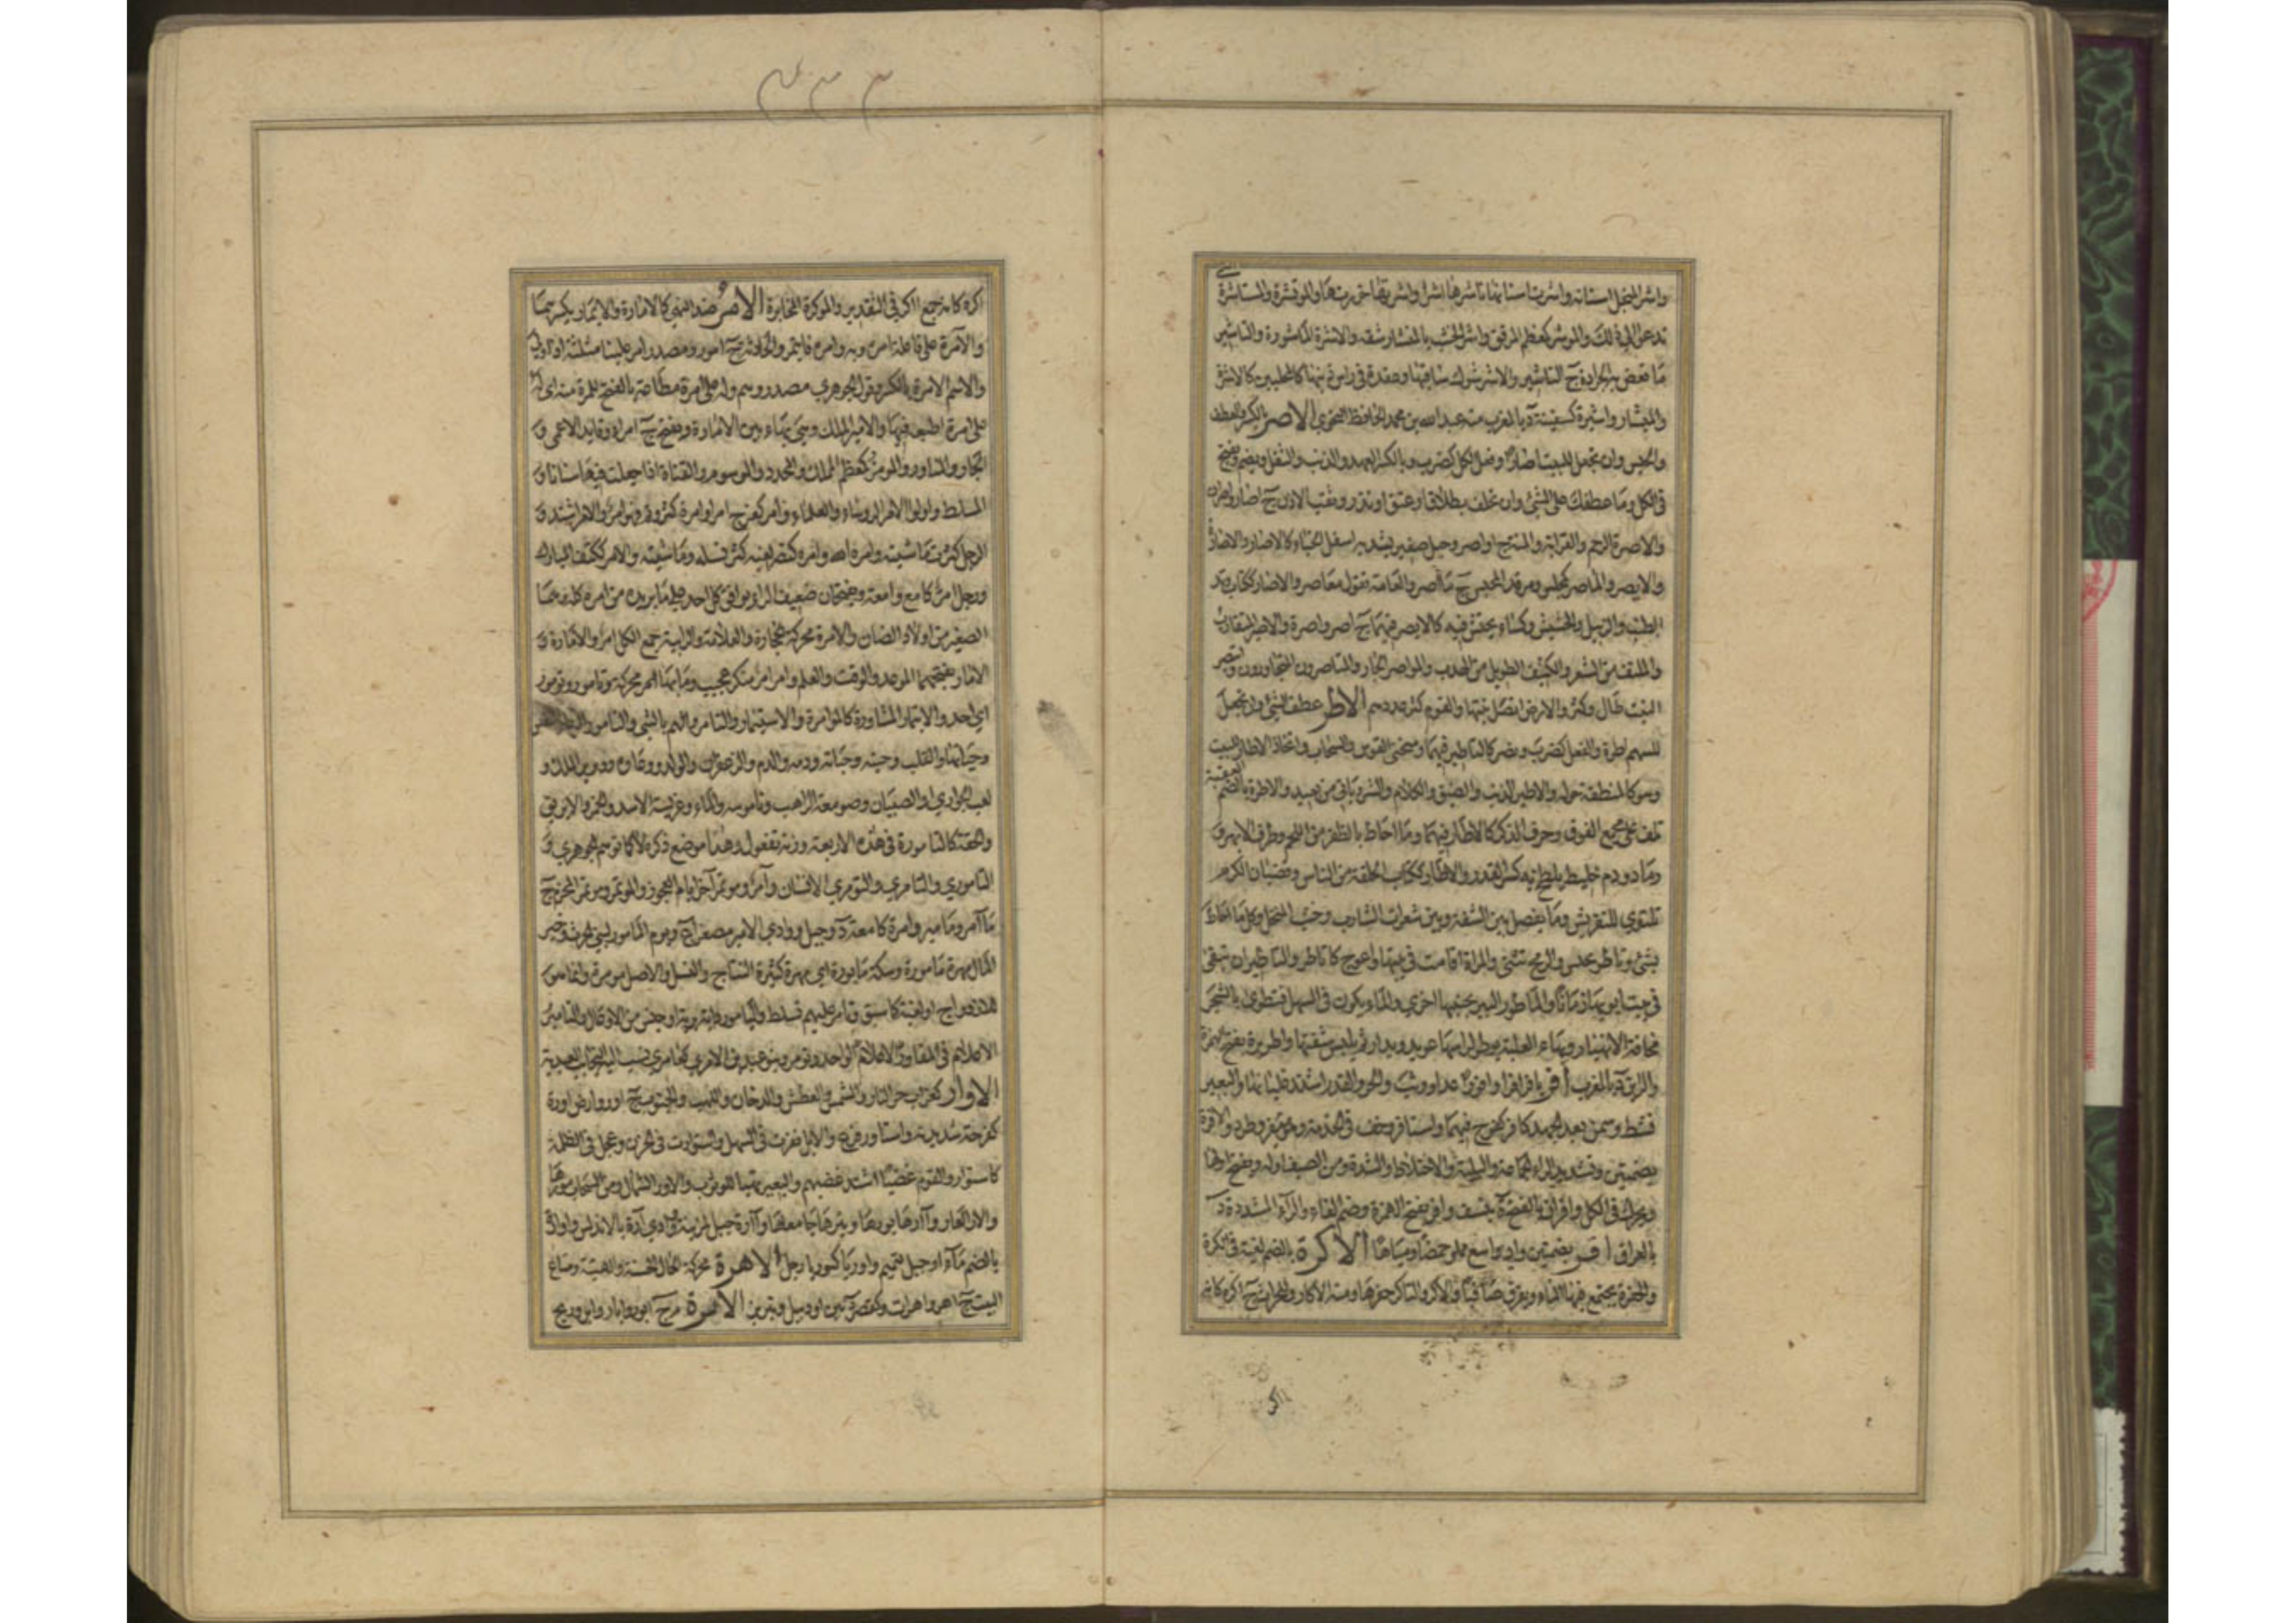 واشر المنجل اسنانه واشرت اسنانها تاشرها اشرا واشرتها حززتها والموتشرة والمستاشرة التي
تدعو الى ذلك والموشر كمعظم المرقق واشر الخشب بالمنشار شقه والاشرة الماشورة والتاشير
ما تعض به الجرادة ج التاشير والاشر شوك ساقيها وعقدة في راس ذنبها كالمخلبين كالاشرة
والمئشار واشيرة كسفينة د بالمغرب منه عبد الله بن محمد الحافظ النحوي الاصر الكسر والعطف
والحبس وان تجعل للبيت اصارا وفعل الكل كضرب وبالكسر العهد والذنب والثقل ويضم ويفتح
في الكل وما عطفك على الشيء وان تحلف بطلاق او عتق او نذر وثقب الاذن ج اصار واصران
والاصرة الرحم والقرابة والمنة ج اواصر وحبل صغير يشد به اسفل الخباء كالاصار والاصارة
والايصر والماصر كمجلس ومرقد المحبس ج ماصر والعامة تقول معاصر والاصار ككتاب وتد
الطنب والزبيل والحشيش وكساء يحتش فيه كالايصر فيهما ج اصر واصرة والاصير المتقارب
والملتف من الشعر والكثيف الطويل من الهدب والمواصر الجار والمتاصرون المتجاورون وايتصر
النبت طال وكثر والارض اتصل نبتها والقوم كثر عددهم الاطر عطف الشيء وان تجعل
للسهم اطرة والفعل كضرب ونصر كالتاطير فيهما ومنحنى القوس والسحاب واتخاذ الاطار للبيت
وهو كالمنطقة حوله والاطير الذنب والضيق والكلام والشر ياتي من بعيد والاطرة بالضم العقبة
تلف على مجمع الفوق وحرف الذكر كالاطار فيهما وما احاط بالظفر من اللحم وطرف الابهر و
رماد ودم خليط يلطخ به كسر القدر والاطار ككتاب الحلقة من الناس وقضبان الكرم
تلتوي للتعريش وما يفصل بين الشفة وبين شعرات الشارب وخشب المنخل وكل ما احاط
بشيء وتاطر تحبس والرمح تثنى والمراة اقامت في بيتها واعوج كاتاطر والمتاطر ان تبقى
في بيت ابويها زمانا والماطور البير بجنبها اخرى والماء يكون في السهل فتطوى بالشجر
مخافة الانهيار وبهاء العلبة يوطر لراسها عويد ويدار ثم يلبس شفتها واطريرة بفتح الهمزة
والراء د بالمغرب افر يافر افرا وافورا عدا ووثب والحر والقدر اشتد غليانها والبعير
نشط وسمن بعد الجهد كافر كفرح فيهما واستافر وخف في الخدمة وهو ميفر وطرد والافرة
بضمتين وتشديد الراء الجماعة والبلية والاختلاط والشدة ومن الصيف اوله ويفتح اولها
ويحرك في الكل وافران بالفتح ة بنسف وافر بفتح الهمزة وضم الفاء والراء المشددة د
بالعراق اقر بضمتين واد واسع مملو حمضا ومياها الاكرة بالضم لغية في الكرة
والحفرة يجتمع فيها الماء ويغرف صافيا والاكر والتاكر حفرها ومنه الاكار والحراث ج اكرة كانه
اكر
اكرة كانه جمع اكر في التقدير والمواكرة المخابرة الامر ضد النهي كالامارة والايمار بكسرهما
والآمرة على فاعلة امره وبه وامره فايتمر والحادثة ج امور ومصدر امر علينا مثلثة اذا ولي
والاسم الامرة بالكسر وقول الجوهري مصدر وهم وله علي امرة مطاعة بالفتح للمرة منه اي له
علي امرة اطيعه فيها والامير الملك وهي بهاء بين الامارة ويفتح ج امراء وقايد الاعمى و
الجار والمشاور والمومر كمعظم المملك والمحدد والموسوم والقناة اذا جعلت فيها سنانا و
المسلط واولوا الامر الروساء والعلماء وامر كفرح امرا وامرة كثر وتم فهو امر والامر اشتد و
الرجل كثرت ماشيته وامره الله وامره كنصره لغية كثر نسله وماشيته والامر ككتف المبارك
ورجل امر كامع وامعة ويفتحان ضعيف الراي يوافق كل احد على ما يريده من امره كله وهما
الصغير من اولاد الضان والامرة محركة الحجارة والعلامة والرابية جمع الكل امر والامارة و
الامار بفتحهما الموعد والوقت والعلم وامر امر منكر عجيب وما بها امر محركة وتامور وتومور
اي احد والايتمار المشاورة كالموامرة والاستيمار والتامر والهم بالشيء والتامور
وحياتها والقلب وحبته وحياته ودمه والدم والزعفران والولد ووعاوه ووزير الملك و
لعب الجواري او الصبيان وصومعة الراهب وناموسه والماء وعريسة الاسد والخمر والابريق
والحقة كالتامورة في هذه الاربعة وزنه تفعول وهذا موضع ذكره لا كما توهم الجوهري و
التاموري والتامري والتومري الانسان وآمر ومؤتمر آخر ايام العجوز والموتمر ومؤتمر المحرم ج
مآمر ومآمير وامرة كامعة د وجبل ووادي الامير مصغرا ع ويوم المامور لبني الحرث وخير
المال مهرة مامورة وسكة مابورة اي مهرة كثيرة النتاج والنسل والاصل مومرة وانما هو
للازدواج او لغية كما سبق وتامر عليهم تسلط واليامور دابة برية او جنس من الاوعال والتامير
الاعلام في المفاوز الاعلام الواحد تومر وبنو عيد بن الامري كعامري نسب اليه النجائب العيدية
الاوار كغراب حر النار والشمس والعطش والدخان واللهب والجنوب ج اور وارض اورة
كفرحة شديدته واستاور فزع والابل نفرت في السهل واستورت في الحزن وعجل في الظلمة
كاستوار والقوم غضبا اشتد غضبهم والبعير تهيا للوثوب والاور الشمال ومن السحاب مورها
والار العار وآرها يورها ويئرها جامعها وآرة جبل لمزينة ووادي آرة بالاندلس واوارة
بالضم ماء او جبل لتميم واورياء كبوريا رجل الاهرة محركة الحال الحسنة والهيئة ومتاع
البيت ج اهر واهرات وكتصرة بين اردبيل وتبريز الايرة مر ج ايور وآيار وآير وريح